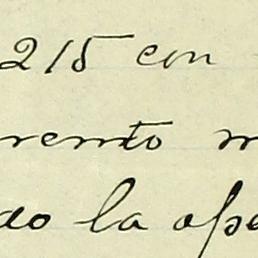 215 con
rento m
do la ope